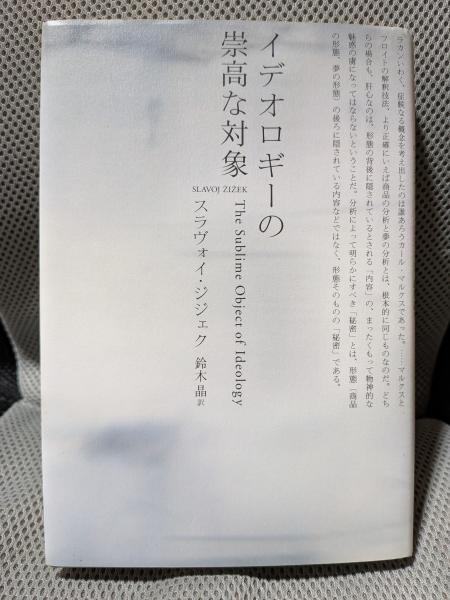 ラカンいわく、症候なる概念を考え出したのは誰あろうカール・マルクスであった。……マルクスと
フロイトの解釈技法、より正確にいえば商品の分析と夢の分析とは、根本的に同じものなのだ。どち
らの場合も、肝心なのは、形態の背後に隠されているとされる「内容」の、まったくもって物神的な
魅惑の虜になってはならないということだ。分析によって明らかにすべき「秘密」とは、形態(商品
の形態、夢の形態)の後ろに隠されている内容などではなく、形態そのものの「秘密」である。
イデオロギーの
崇高な対象
SLAVOJ ŽIŽEK
The Sublime Object of Ideology
スラヴォイ・ジジェク 鈴木晶 訳